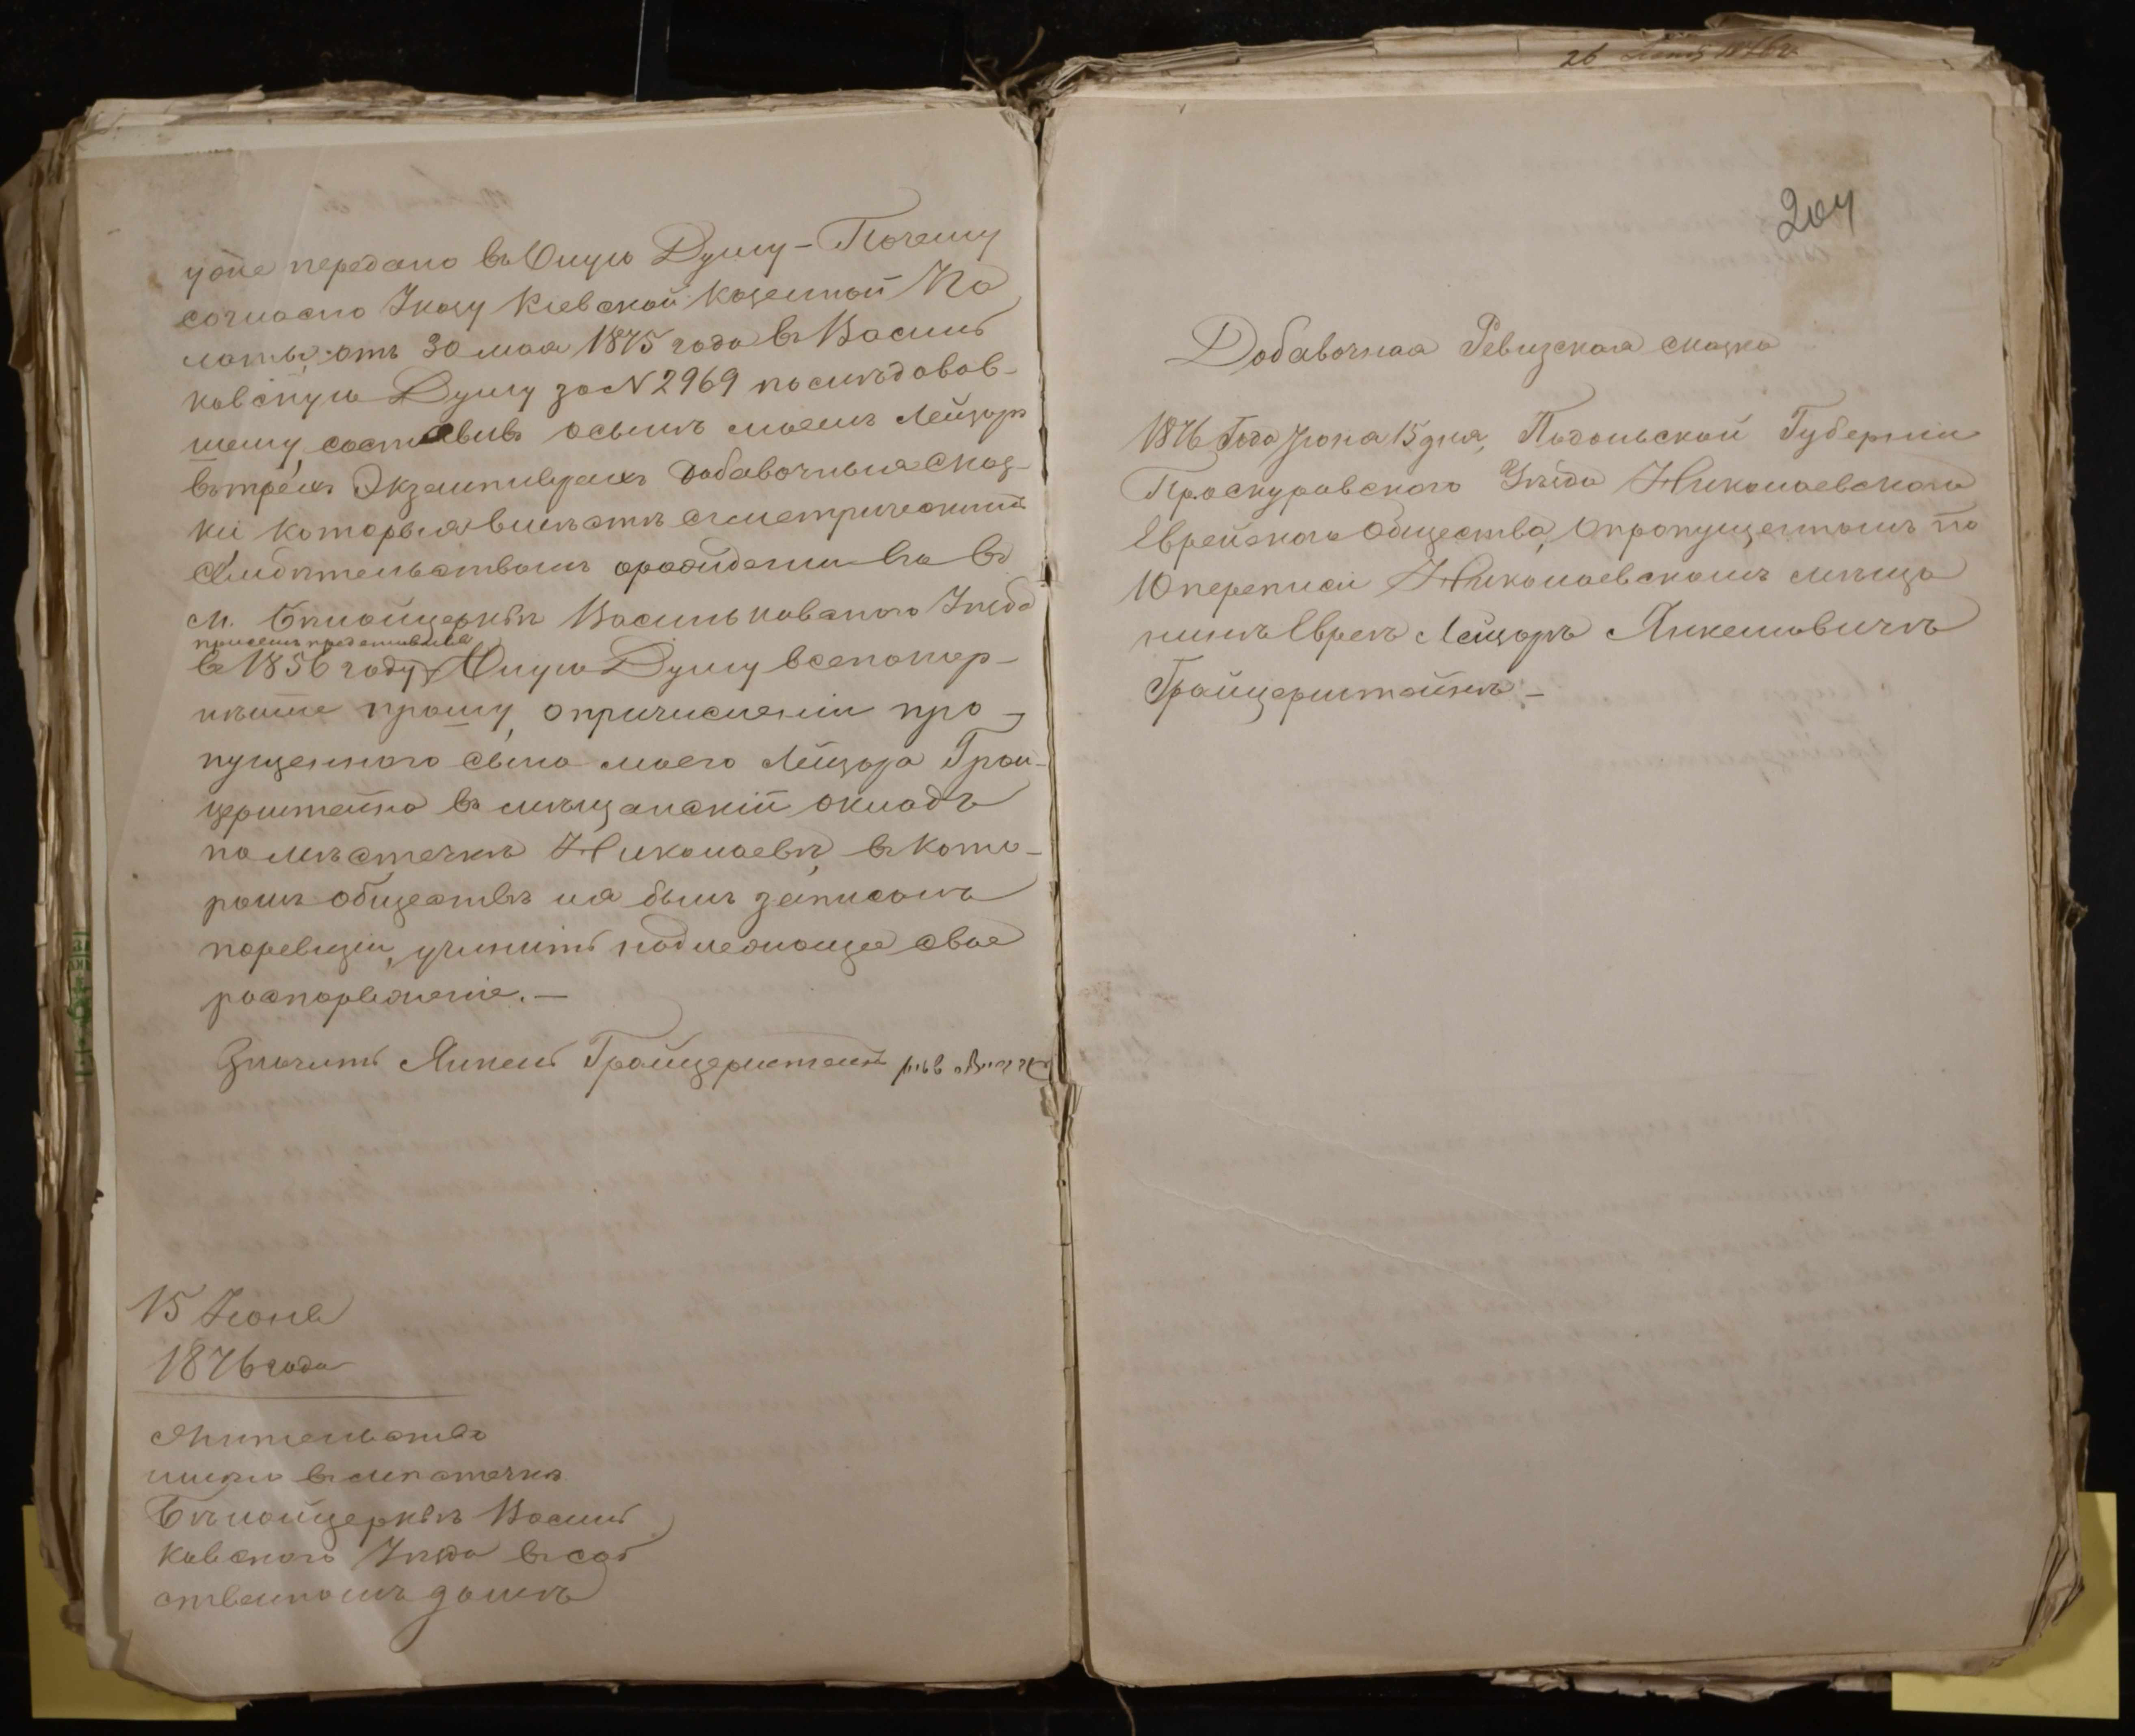 уже передано въ Оную Думу – Почему
согласно Указу Кіевской Казенной Па
латы, отъ 30 мая 1875 года въ Василь
ковскую Думу за N 2969 послѣдовав-
шему, составивъ о сынѣ моемъ Лейзорѣ
въ трехъ Экземплярахъ добавочныя Сказ-
ки которыя вмѣстѣ съ метрическимъ
Свидѣтельствомъ о рожденіи его въ
м. Бѣлойцеркви Васильковскаго Уѣзда
при семъ представляя
въ 1856 году, Оную Думу всепокор-
нѣйше прошу, о причисленіи про-
пущенного сына моего Лейзора Грай-
церштейна въ мѣщанскій окладъ
по мѣстечкѣ Николаевѣ, въ кото-
ромъ обществѣ и я былъ записанъ
по ревизіи, учинить подлежащее свое
распоряженіе. —
Значитъ Янкель Грайцерштейнъ
15 Іюня
1876 года
Жительство
имѣю въ мѣстечкѣ
Бѣлойцерквѣ Василь
ковскаго Уѣзда въ соб
ственномъ домѣ
204
Добавочная Ревизская сказка
1876 Года Іюня 15 дня, Подольской Губерніи
Проскуровского Уѣзда Николаевского
Еврейского Общества, О пропущенномъ по
10 переписи Николаевскомъ мѣща
нинѣ Евреѣ Лейзорѣ Янкелевичѣ
Грайцерштейнѣ –